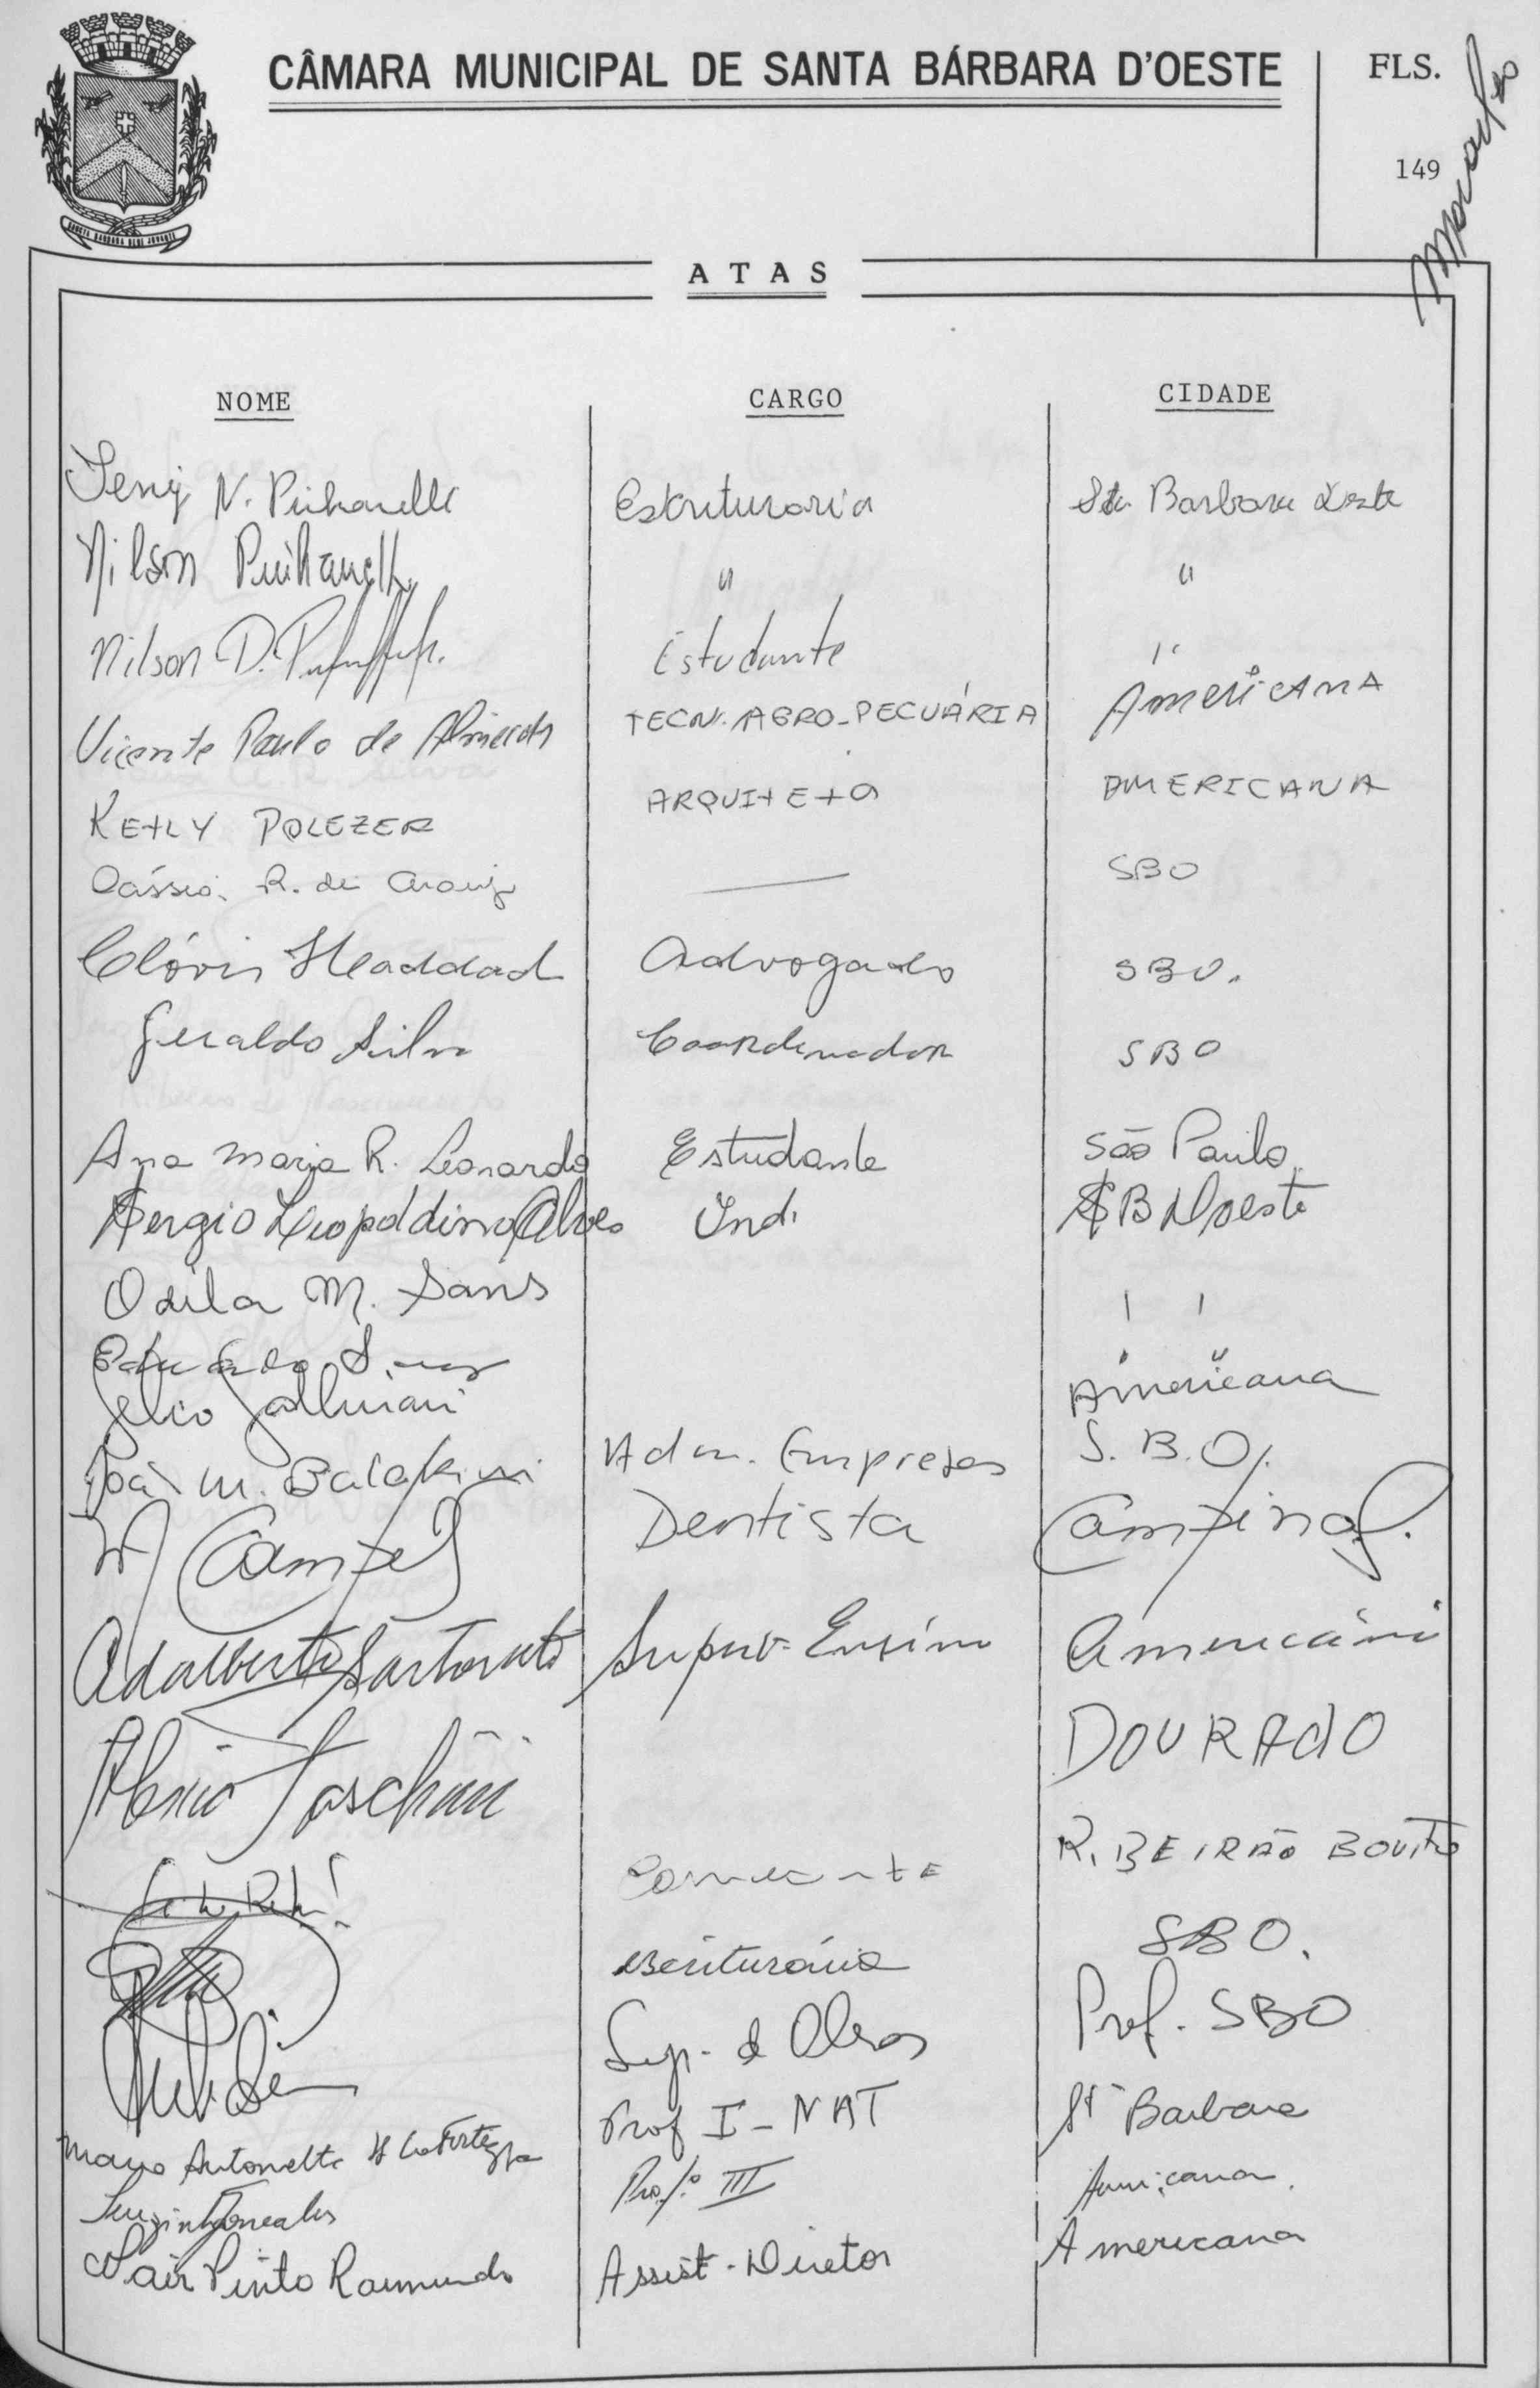 CÂMARA MUNICIPAL DE SANTA BÁRBARA D'OESTE
FLS.
149
ATAS
NOME CARGO CIDADE
N. Escrituraria Sta. Barbara
Nilson " "
Nilson D. Estudante "
Vicente Paulo de Almeida TECN. AGRO-PECUÁRIA AmeRiCANA
KEtLY POLEZER ARQUItEtA AMERICANA
Cássio R. de Araujo — SBO
Clóvis Haddad Advogado SBO.
Geraldo Silva Coordenador SBO
Ana Maria R. Leonardo Estudante São Paulo
Sergio Leopoldino Alves Ind. SB Doeste
Odila M. Sans " "
Eduardo
Americana
João M. Adm. Empresas S.B.O.
Campos Dentista Campinas.
Adalberto Sartorato Superv. Ensino Americana
DOURADO
RIBEIRÃO BONITO
escriturária SBO.
Sup. de Obras Pref. SBO
Maria Antonelta Prof I - NAT Sta Barbara
Prof.º III Americana.
Nair Pinto Raimundo Assist. Diretor Americana